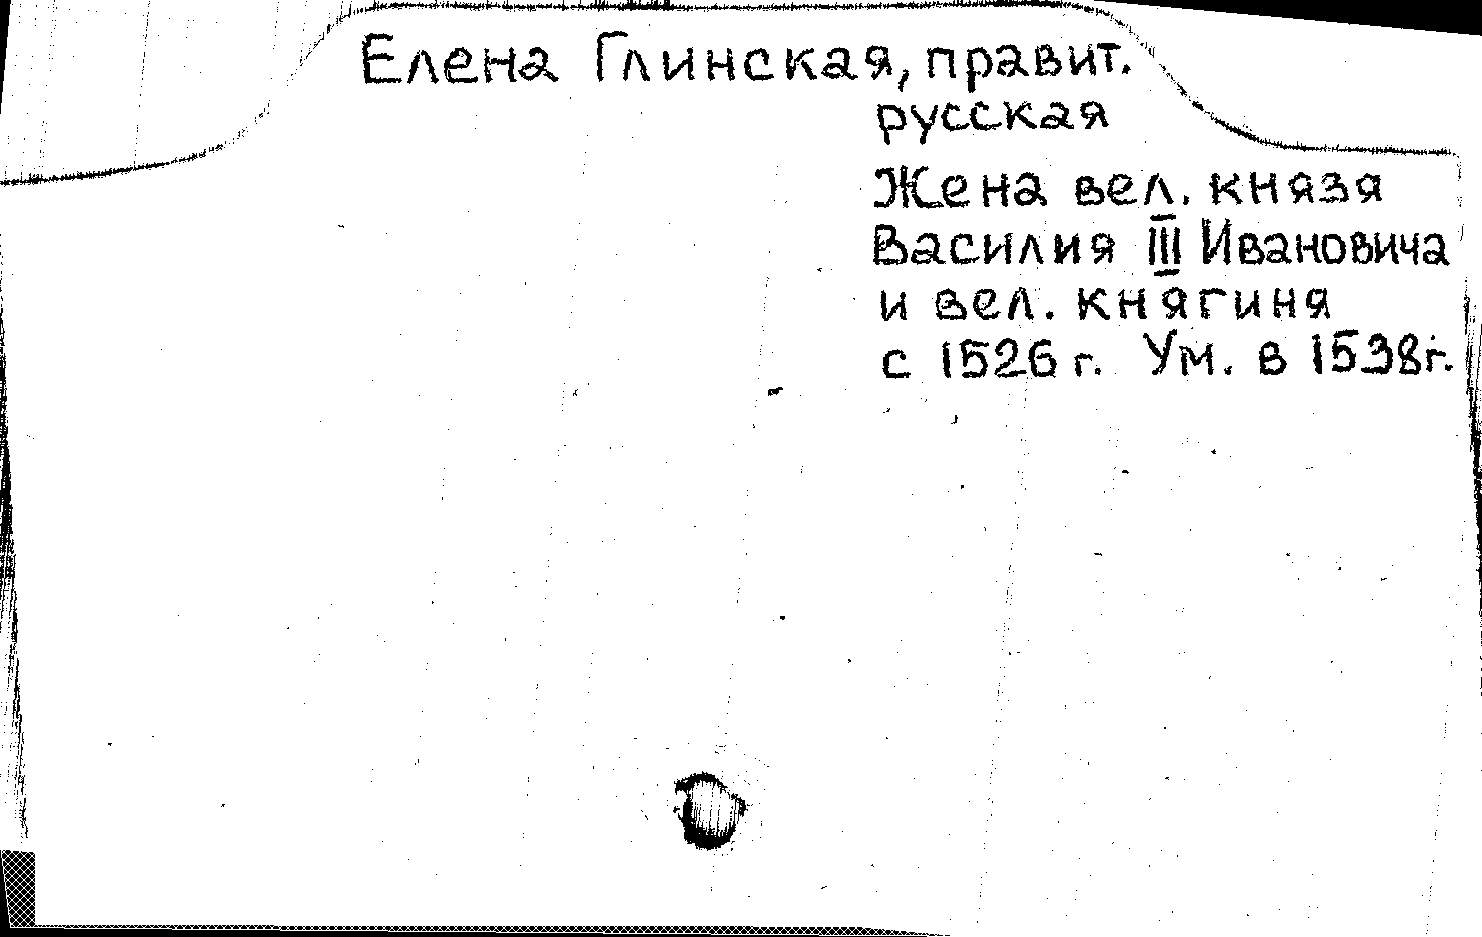 Елена Глинская, правит.
русская
Жена вел. князя
Василия III Ивановича
и вел. княгиня
с 1526 г. Ум. в 1538г.